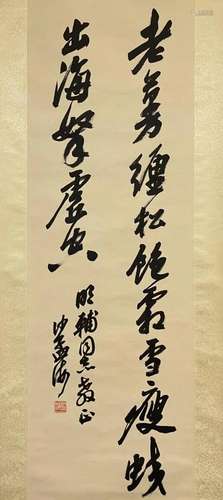 老蔓缠松饱霜雪瘦蛟
出海拏虚空
明辅同志教正
沙孟海